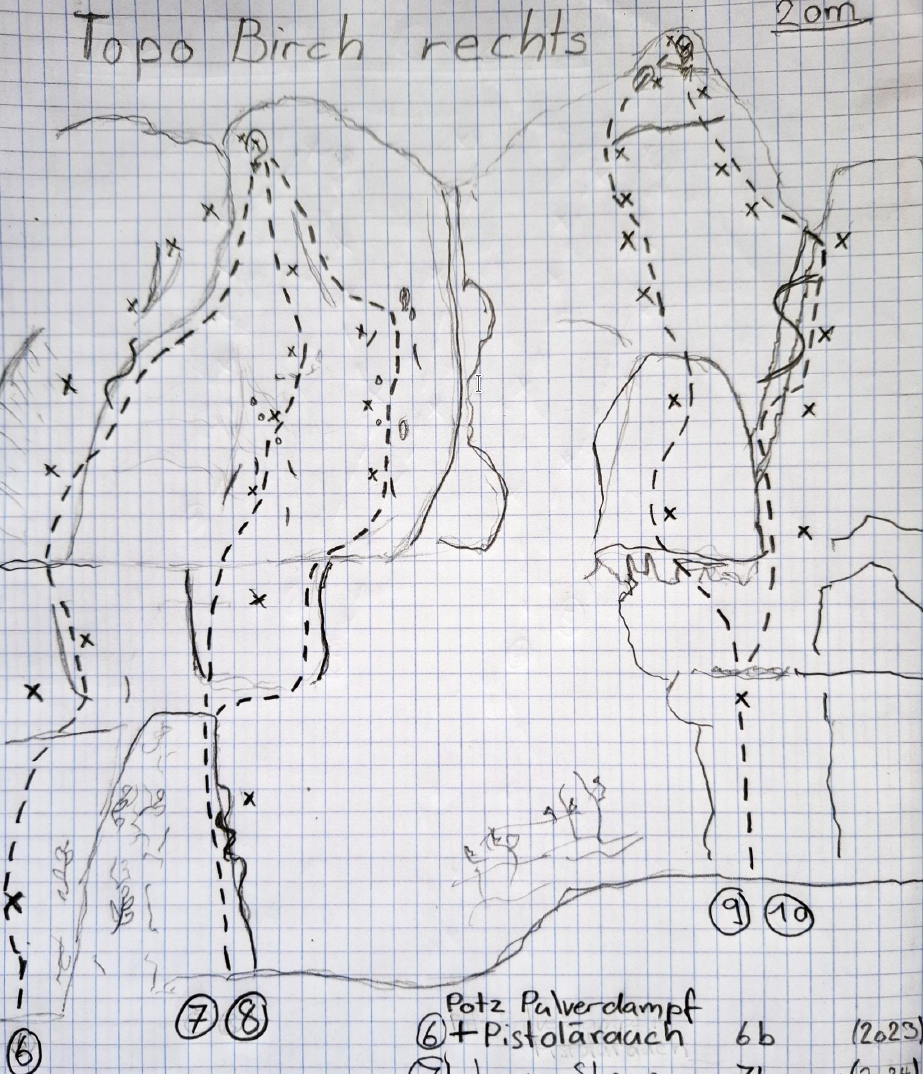 20m
Topo Birch rechts
9 10
7 8
6
Potz Pulverdampf
6 + Pistolärauch 6b (2023)